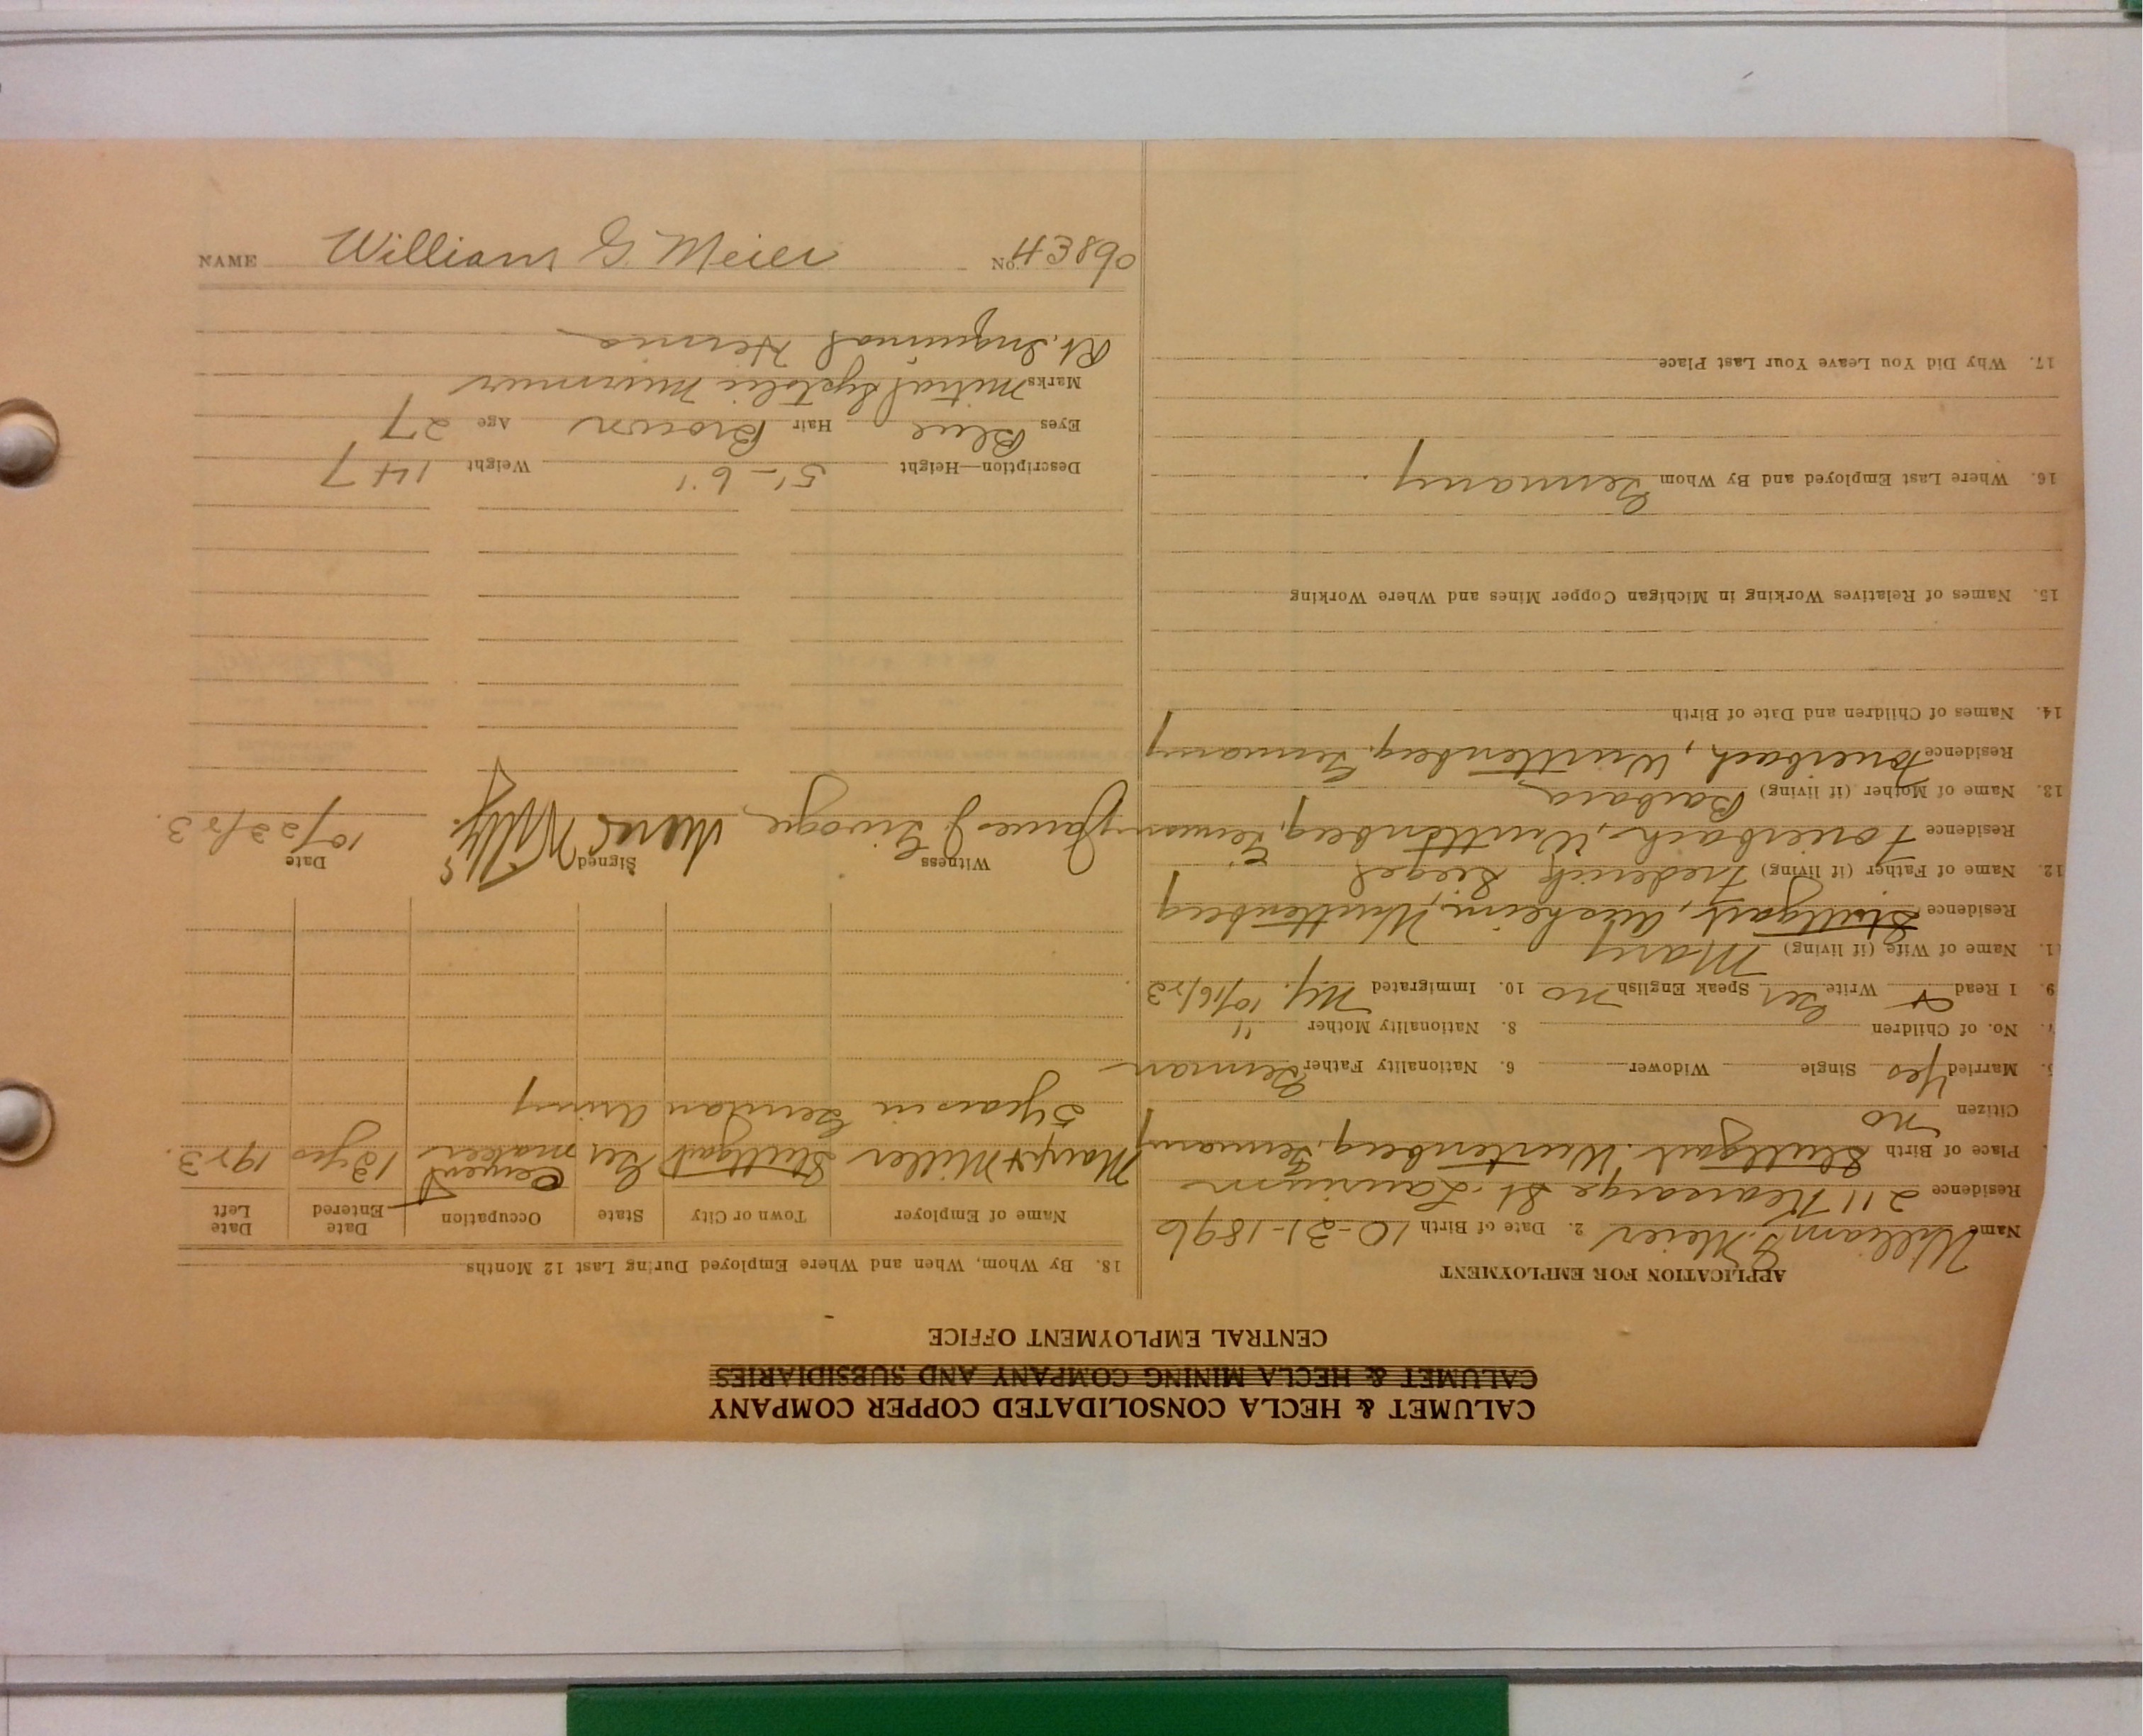 CALUMET & HECLA CONSOLIDATED COPPER COMPANY
CALUMET & HECLA MINING COMPANY AND SUBSIDIARIES
CENTRAL EMPLOYMENT OFFICE
APPLICATION FOR EMPLOYMENT
Name William G. Meier 2. Date of Birth 10-31-1896
Residence 211 Kearsarge St. Laurium
Place of Birth Stuttgart. Wurtenberg, Germany
Citizen no
Married Yes Single Widower 6. Nationality Father German
No. of Children 8. Nationality Mother "
9. I Read Write Ger Speak English no 10. Immigrated Ny. 10/16/23
1. Name of Wife (if living) Mary
Residence Stuttgart, Wurttenberg
12. Name of Father (if living) Frederick Siegel
Residence Wurttenberg, Germany
13. Name of Mother (if living) Barbara
Residence Wurttenberg, Germany
14. Names of Children and Date of Birth
15. Names of Relatives Working in Michigan Copper Mines and Where Working
16. Where Last Employed and By Whom Germany.
17. Why Did You Leave Your Last Place
18. By Whom, When and Where Employed During Last 12 Months
Name of Employer Town or City State Occupation Date Entered Date Left
Miller Stuttgart Ger maker 13 yrs 1923.
5 years in German Army
Witness Signed Date
James J 10/23/23.
Description—Height 5'-6" Weight 147
Eyes Blue Hair Brown Age 27
Marks Mitral Systolic Murmur
Rt. Inguinal Hernia
NAME William G. Meier No. 43890